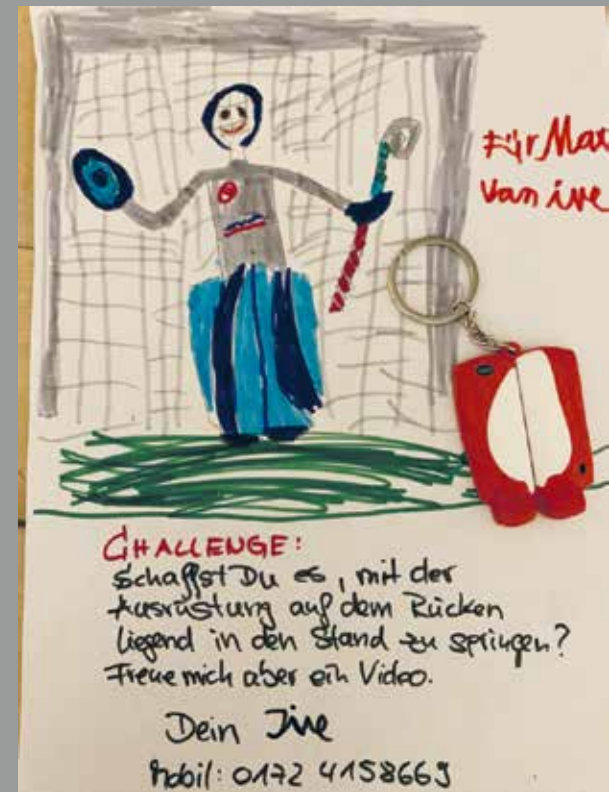 Für Max
Van ive
CHALLENGE:
Schaffst Du es, mit der
Ausrüstung auf dem Rücken
liegend in den Stand zu springen?
Freue mich aber ein Video.
Dein Jive
Mobil: 0172 4158669